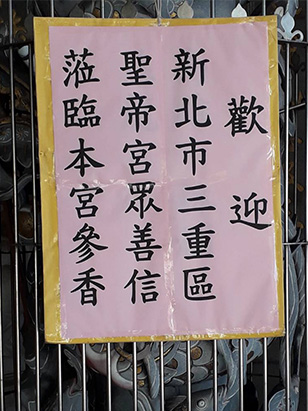 歡迎
新北市三重區
聖帝宮眾善信
蒞臨本宮參香